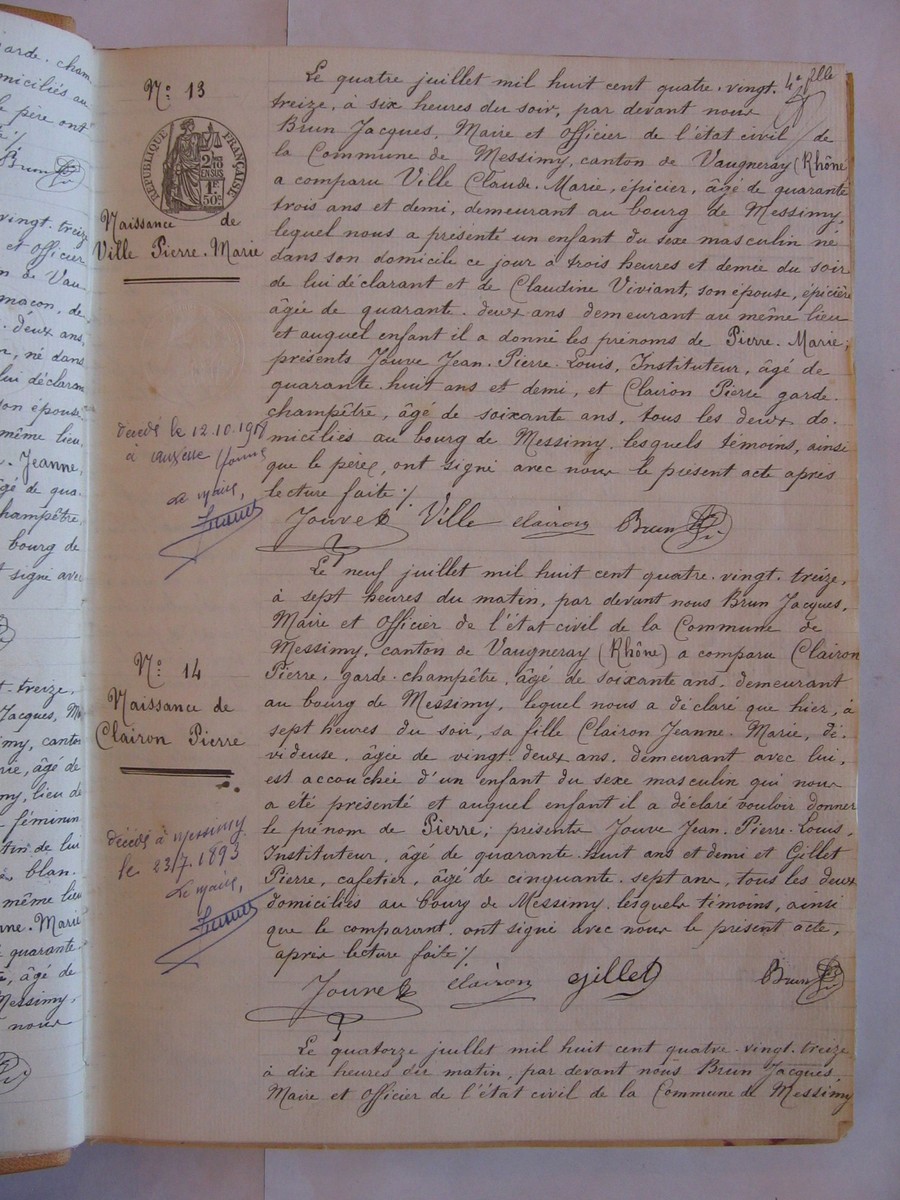 arde-cham
miciliés au
le père ont
té :/.
Brun
vingt-treize
et Officier
n de Vau
maçon, de
deux ans,
n, né dans
lui déclarant
son épouse
même lieu,
Jeanne,
âgé de qua-
champêtre,
bourg de
t signé avec
t-treize,
Jacques, Ma
my, canton
rie, âgé de
my, lieu de
féminin
tin de lui
blan-
même lieu
nne-Marie
quarante-
, âgé de
Messimy,
nous
N° 13
RÉPUBLIQUE FRANÇAISE
2/10 EN SUS
1F. 50c.
Naissance de
Ville Pierre-Marie
décédé le 12.10.1951
à Auxerre (Yonne
Le maire,
N° 14
Naissance de
Clairon Pierre
décédé à Messimy
le 23/7.1893
Le maire,
Le quatre juillet mil huit cent quatre-vingt-
treize, à six heures du soir, par devant nous
Brun Jacques, Maire et Officier de l'état civil de
la Commune de Messimy, canton de Vaugneray (Rhône
a comparu Ville Claude-Marie, épicier, âgé de quarante
trois ans et demi, demeurant au bourg de Messimy,
lequel nous a présenté un enfant du sexe masculin né
dans son domicile ce jour à trois heures et demie du soir
de lui déclarant et de Claudine Viviant, son épouse, épicière
âgée de quarante-deux ans demeurant au même lieu
et auquel enfant il a donné les prénoms de Pierre-Marie;
présents Jouve Jean-Pierre-Louis, Instituteur, âgé de
quarante-huit ans et demi, et Clairon Pierre garde-
champêtre, âgé de soixante ans, tous les deux do-
miciliés au bourg de Messimy, lesquels témoins, ainsi
que le père, ont signé avec nous le présent acte après
lecture faite :/.
Jouve Ville Clairon Brun
Le neuf juillet mil huit cent quatre-vingt-treize,
à sept heures du matin, par devant nous Brun Jacques,
Maire et Officier de l'état civil de la Commune de
Messimy, canton de Vaugneray (Rhône) a comparu Clairon
Pierre, garde-champêtre, âgé de soixante ans, demeurant
au bourg de Messimy, lequel nous a déclaré que hier, à
sept heures du soir, sa fille Clairon Jeanne-Marie, dé-
videuse, âgée de vingt-deux ans, demeurant avec lui,
est accouchée d'un enfant du sexe masculin qui nous
a été présenté et auquel enfant il a déclaré vouloir donner
le prénom de Pierre; présents Jouve Jean-Pierre-Louis,
Instituteur, âgé de quarante-huit ans et demi et Gillet
Pierre, cafetier, âgé de cinquante-sept ans, tous les deux
domiciliés au bourg de Messimy, lesquels témoins, ainsi
que le comparant, ont signé avec nous le présent acte,
après lecture faite :/.
Jouve Clairon Gillet Brun
Le quatorze juillet mil huit cent quatre-vingt-treize
à dix heures du matin, par devant nous Brun Jacques,
Maire et Officier de l'état civil de la Commune de Messimy